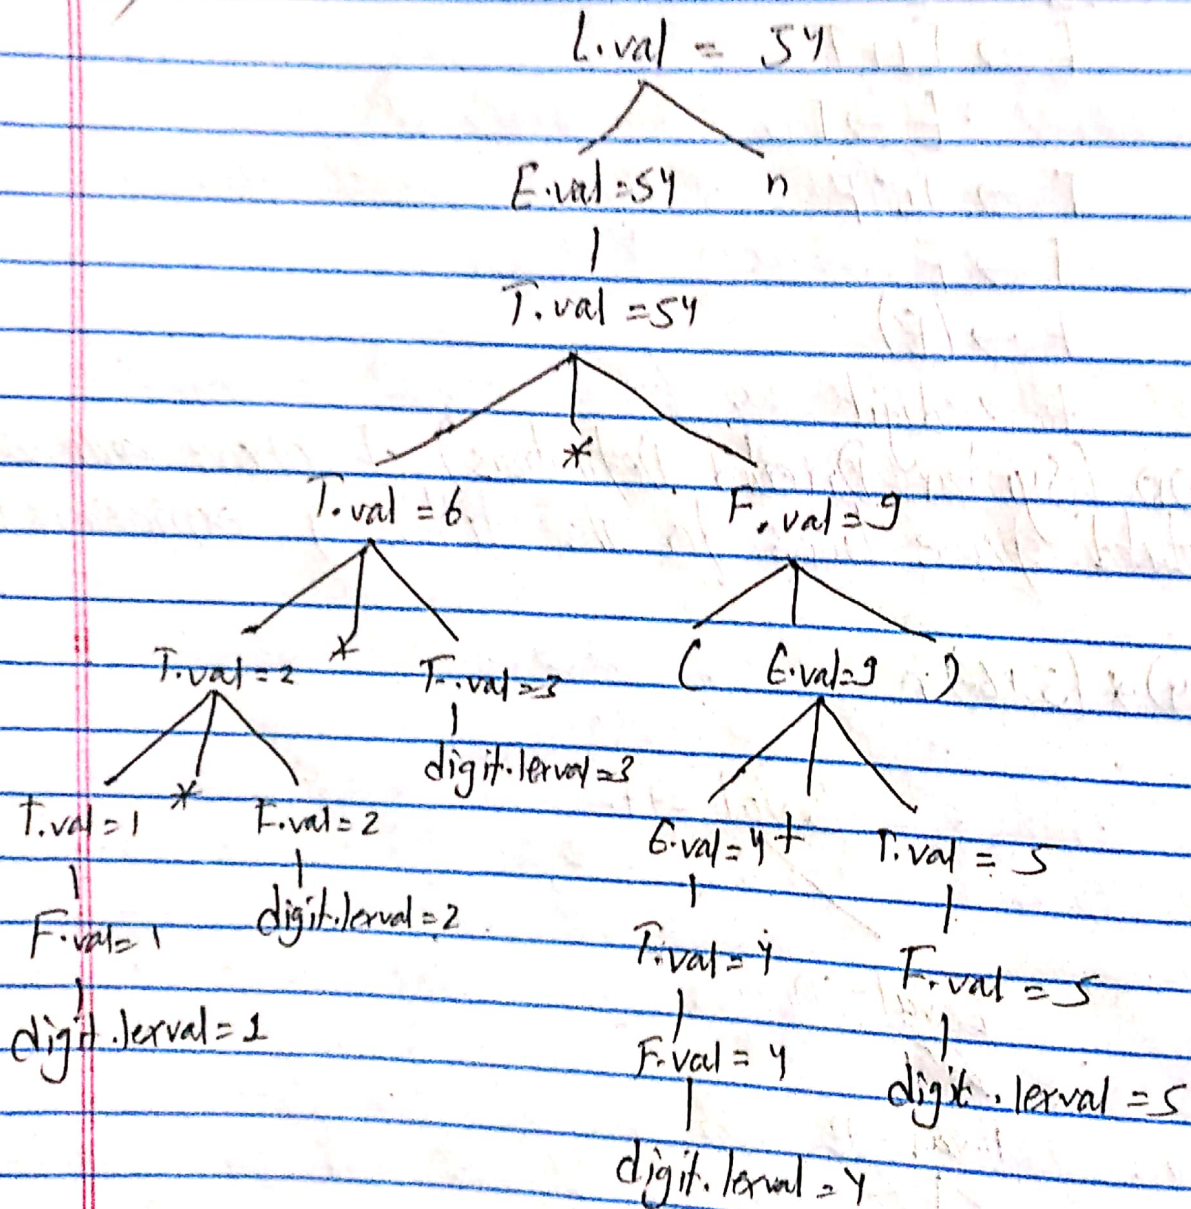 L.val = 54
E.val = 54 n
T.val = 54
*
T.val = 6 F.val = 9
* ( E.val = 9 )
T.val = 2 F.val = 3
digit.lexval = 3
*
T.val = 1 F.val = 2 E.val = 4 + T.val = 5
F.val = 1 digit.lexval = 2 T.val = 4 F.val = 5
digit.lexval = 1 F.val = 4 digit.lexval = 5
digit.lexval = 4